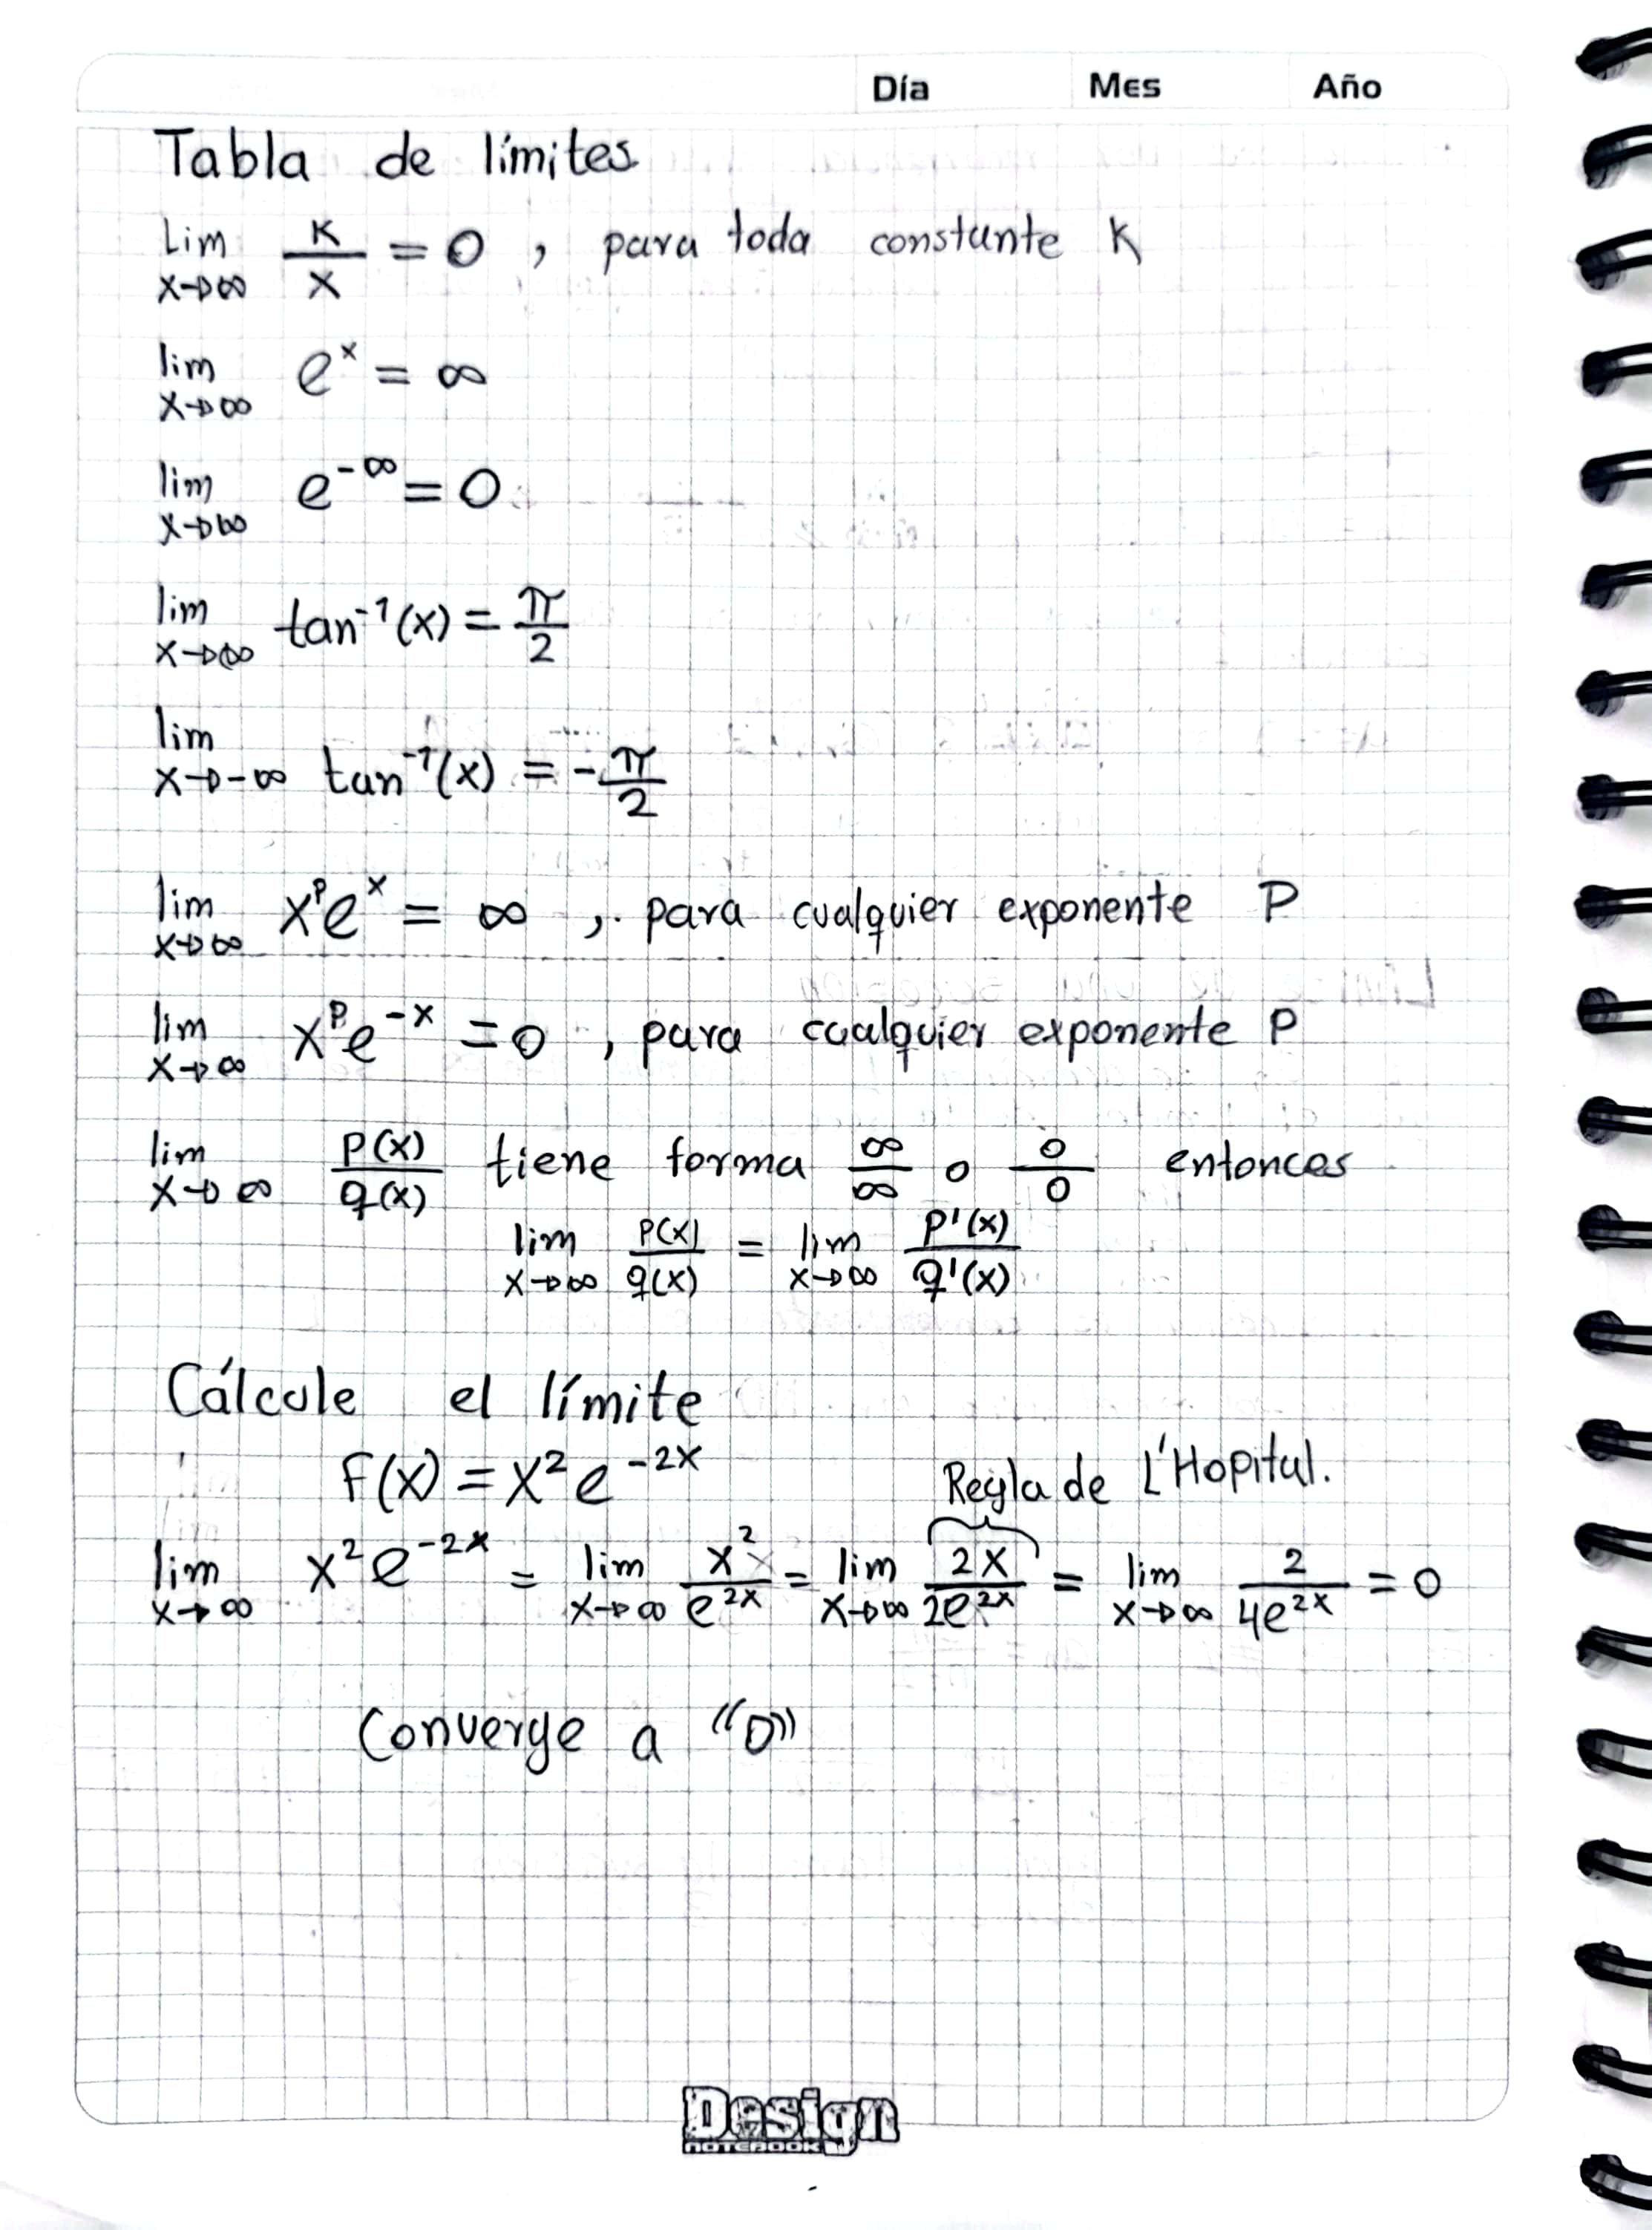 Día Mes Año
Tabla de límites
Lim x→∞ K/x = 0 , para toda constante K
lim x→∞ e^x = ∞
lim x→∞ e^-∞ = 0
lim x→∞ tan^-1(x) = π/2
lim x→-∞ tan^-1(x) = -π/2
lim x→∞ x^p e^x = ∞ , para cualquier exponente P
lim x→∞ x^p e^-x = 0 , para cualquier exponente P
lim x→∞ P(x)/q(x) tiene forma ∞/∞ o 0/0 entonces
lim x→∞ P(x)/q(x) = lim x→∞ P'(x)/q'(x)
Cálcule el límite
F(x) = x^2 e^-2x
Regla de L'Hopital.
lim x→∞ x^2 e^-2x = lim x→∞ x^2/e^2x = lim x→∞ 2x/2e^2x = lim x→∞ 2/4e^2x = 0
Converge a "0"
Design
NOTEBOOK